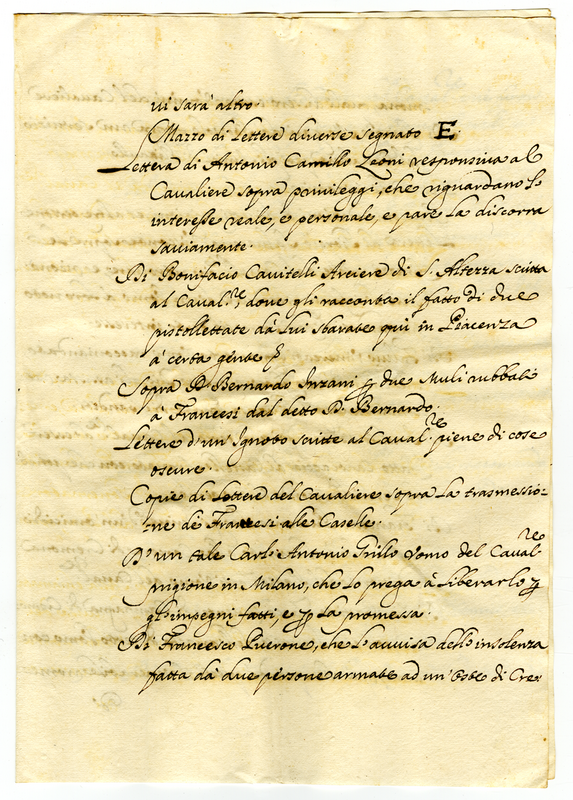 ui sarà altro.
Mazzo di lettere diverse segnato E.
Lettera di Antonio Camillo Leoni responsiva al
Cavaliere sopra privileggi, che riguardano l'
interesse reale, e personale, e pare la discorra
sauiamente.
Di Bonifacio Cavitelli Arciere di S. Altezza scritta
al Caval.re, doue gli racconta il fatto di due
pistollettate dà lui sbarate quì in Piacenza
à certa gente
Sopra D. Bernardo Inzani p due Muli rubbati
à Francesi dal detto D. Bernardo.
Lettere d'un Ignoto scritte al Caval.re piene di cose
oscure.
Copie di Lettere del Caualiere sopra la trasmessio-
ne dè Francesi alle Caselle.
D'un tale Carl'Antonio Grillo uomo del Caval.re
prigione in Milano, che lo prega à liberarlo p
gl'impegni fatti, e p la promessa.
Di Francesco Piverone, che l'auuisa dell'insolenza
fatta dà due persone armate ad un'Oste di Cre-